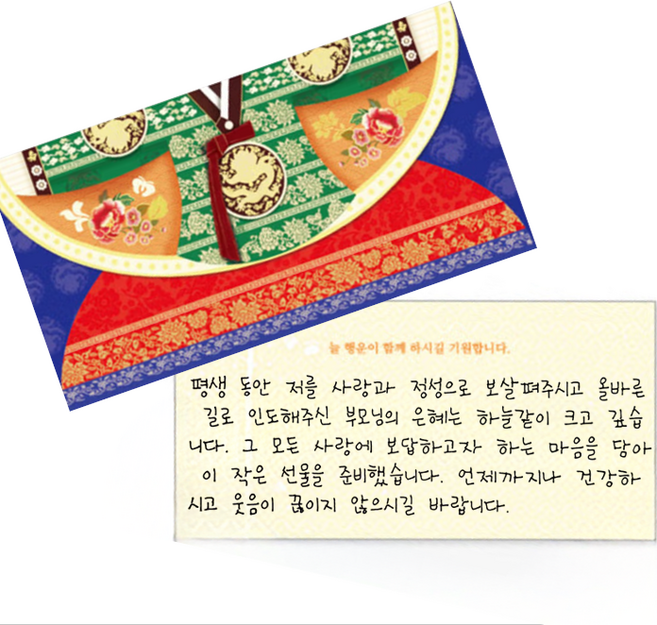 늘 행운이 함께 하시길 기원합니다.
평생 동안 저를 사랑과 정성으로 보살펴주시고 올바른
길로 인도해주신 부모님의 은혜는 하늘같이 크고 깊습
니다. 그 모든 사랑에 보답하고자 하는 마음을 담아
이 작은 선물을 준비했습니다. 언제까지나 건강하
시고 웃음이 끊이지 않으시길 바랍니다.